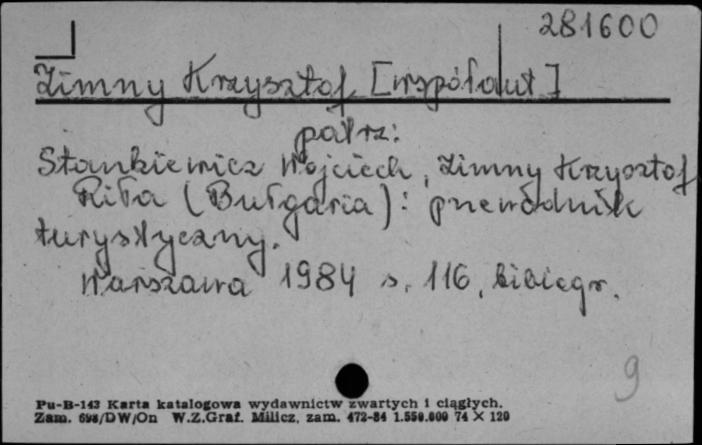 281600
Zimny Krzysztof [współaut]
patrz:
Stankiewicz Wojciech, Zimny Krzysztof
Riła (Bułgaria): przewodnik
turystyczny.
Warszawa 1984 s. 116, bibiogr.
9
Pu-B-143 Karta katalogowa wydawnictw zwartych i ciągłych.
Zam. 698/DW/On W.Z.Graf. Milicz, zam. 472-84 1.550.000 74 X 120